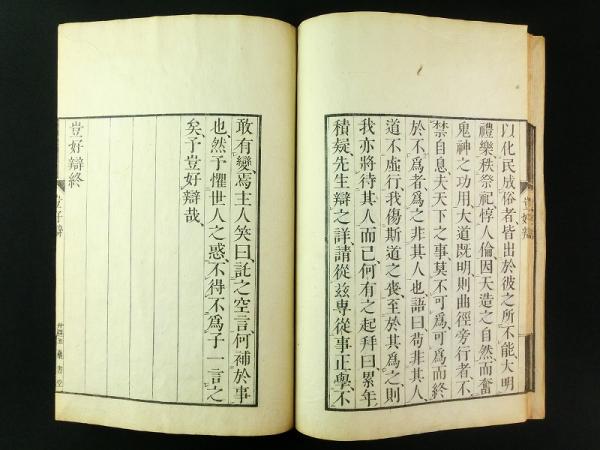 以化民成俗者皆出於彼之所不能大明
禮樂秩祭祀惇人倫因天造之自然而奮
鬼神之功用大道既明則曲徑旁行者不
禁自息夫天下之事莫不可爲可爲而終
於不爲者爲之非其人也語曰苟非其人、
道不虛行我傷斯道之喪至於其爲之則
我亦將待其人而已何有之起拜曰累年
積疑先生辯之詳請從兹專從事正學不
豈好辯
敢有變焉主人笑曰託之空言何補於事
也然予懼世人之惑不得不爲子一言之
矣予豈好辯哉、
豈好辯終